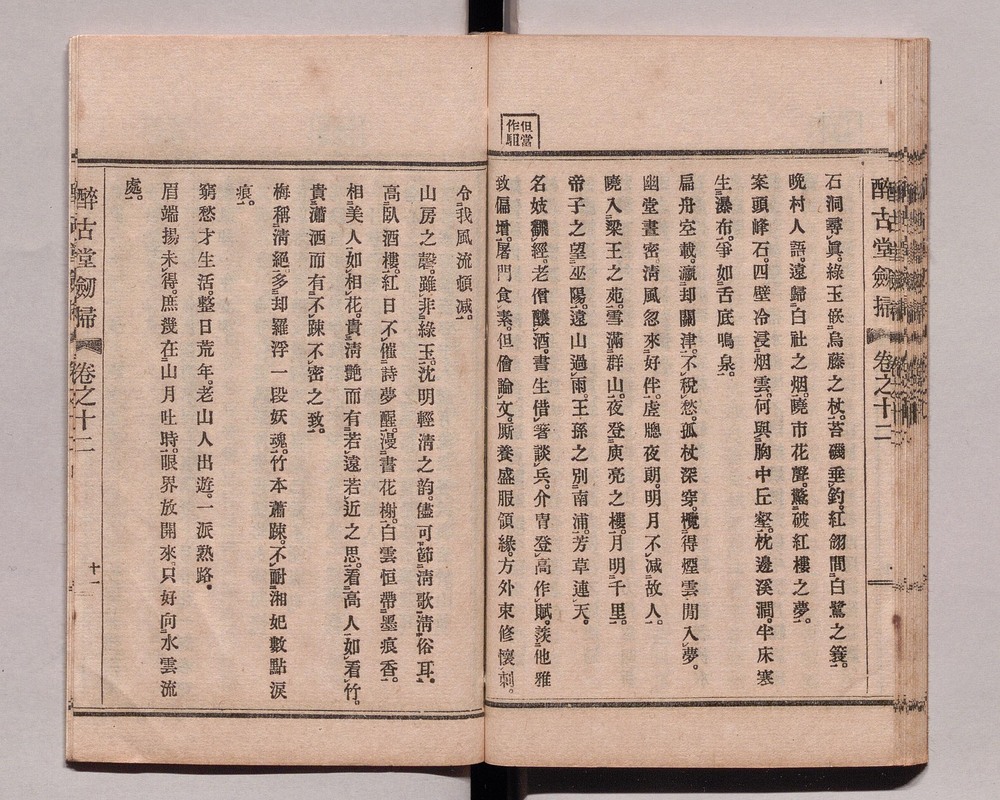 醉古堂劒掃 卷之十二
石洞尋眞。綠玉嵌烏藤之杖。苔磯垂釣。紅翎間白鷺之簑。
晩村人語。遠歸白社之烟。曉市花聲。驚破紅樓之夢。
案頭峰石。四壁冷浸烟雲。何與胸中丘壑。枕邊溪澗。半床寒
生瀑布。爭如舌底鳴泉。
扁舟空載。瀛却關津。不稅愁。孤杖深穿。攬得煙雲閒入夢。
幽堂晝密。淸風忽來好伴。虛牕夜朗。明月不减故人。
曉入梁王之苑。雪滿群山。夜登庾亮之樓。月明千里。
帝子之望巫陽。遠山過雨。王孫之別南浦。芳草連天。
名妓飜經。老僧釀酒。書生借箸談兵。介冑登高作賦。羨他雅
致偏增。屠門食素。但儈論文。厮養盛服領緣。方外束修懷刺。
但當
作駔
令我風流頓减。
山房之磬。雖非綠玉。沈明輕淸之韵。儘可節淸歌淸俗耳。
高臥酒樓。紅日不催詩夢醒。漫書花榭。白雲恒帶墨痕香。
相美人如相花。貴淸艶而有若遠若近之思。看高人如看竹。
貴瀟洒而有不踈不密之致。
梅稱淸絕。多却羅浮一段妖魂。竹本蕭踈。不耐湘妃數點淚
痕。
窮愁才生活。整日荒年。老山人出遊。一派熟路。
眉端揚未得。庶幾在山月吐時。眼界放開來。只好向水雲流
處。
醉古堂劒掃 卷之十二 十一